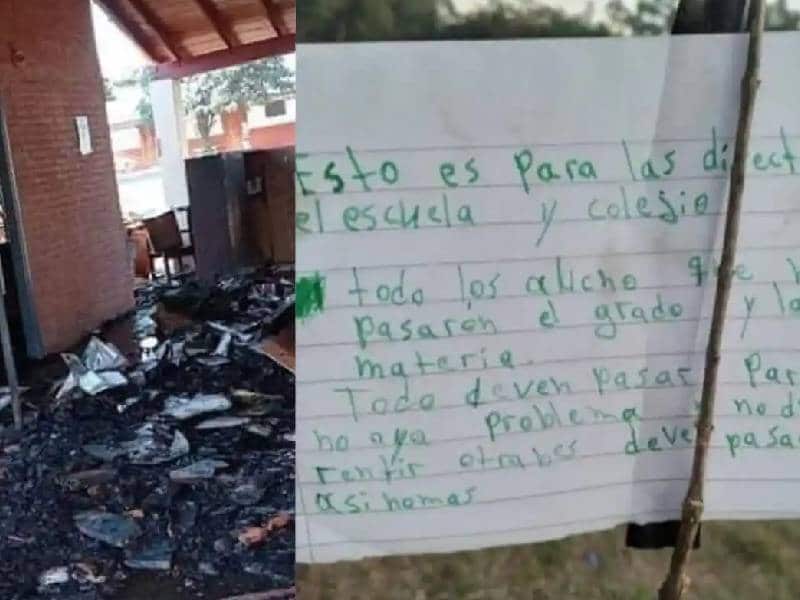 Esto es para las direct
el escuela y colegio
todo los alicho que
pasaron el grado y la
materia.
Todo deven pasar Par
no aya problema y no
rentir otrabes deve pasa
asi nomas